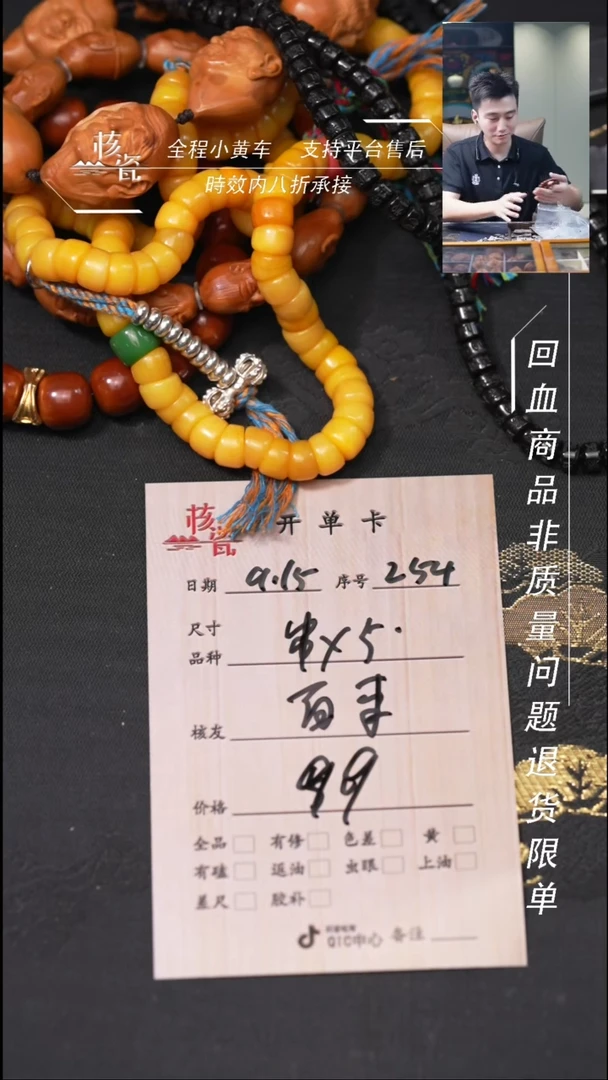 核瓷
全程小黄车 支持平台售后
時效内八折承接
回血商品非质量问题退货限单
核瓷
开单卡
日期 9.15 序号 254
尺寸
品种 串×5.
核友 百丰
价格 99
全品 有修 色差 黄
有磕 返油 虫眼 上油
差尺 胶补
QIC中心 备注